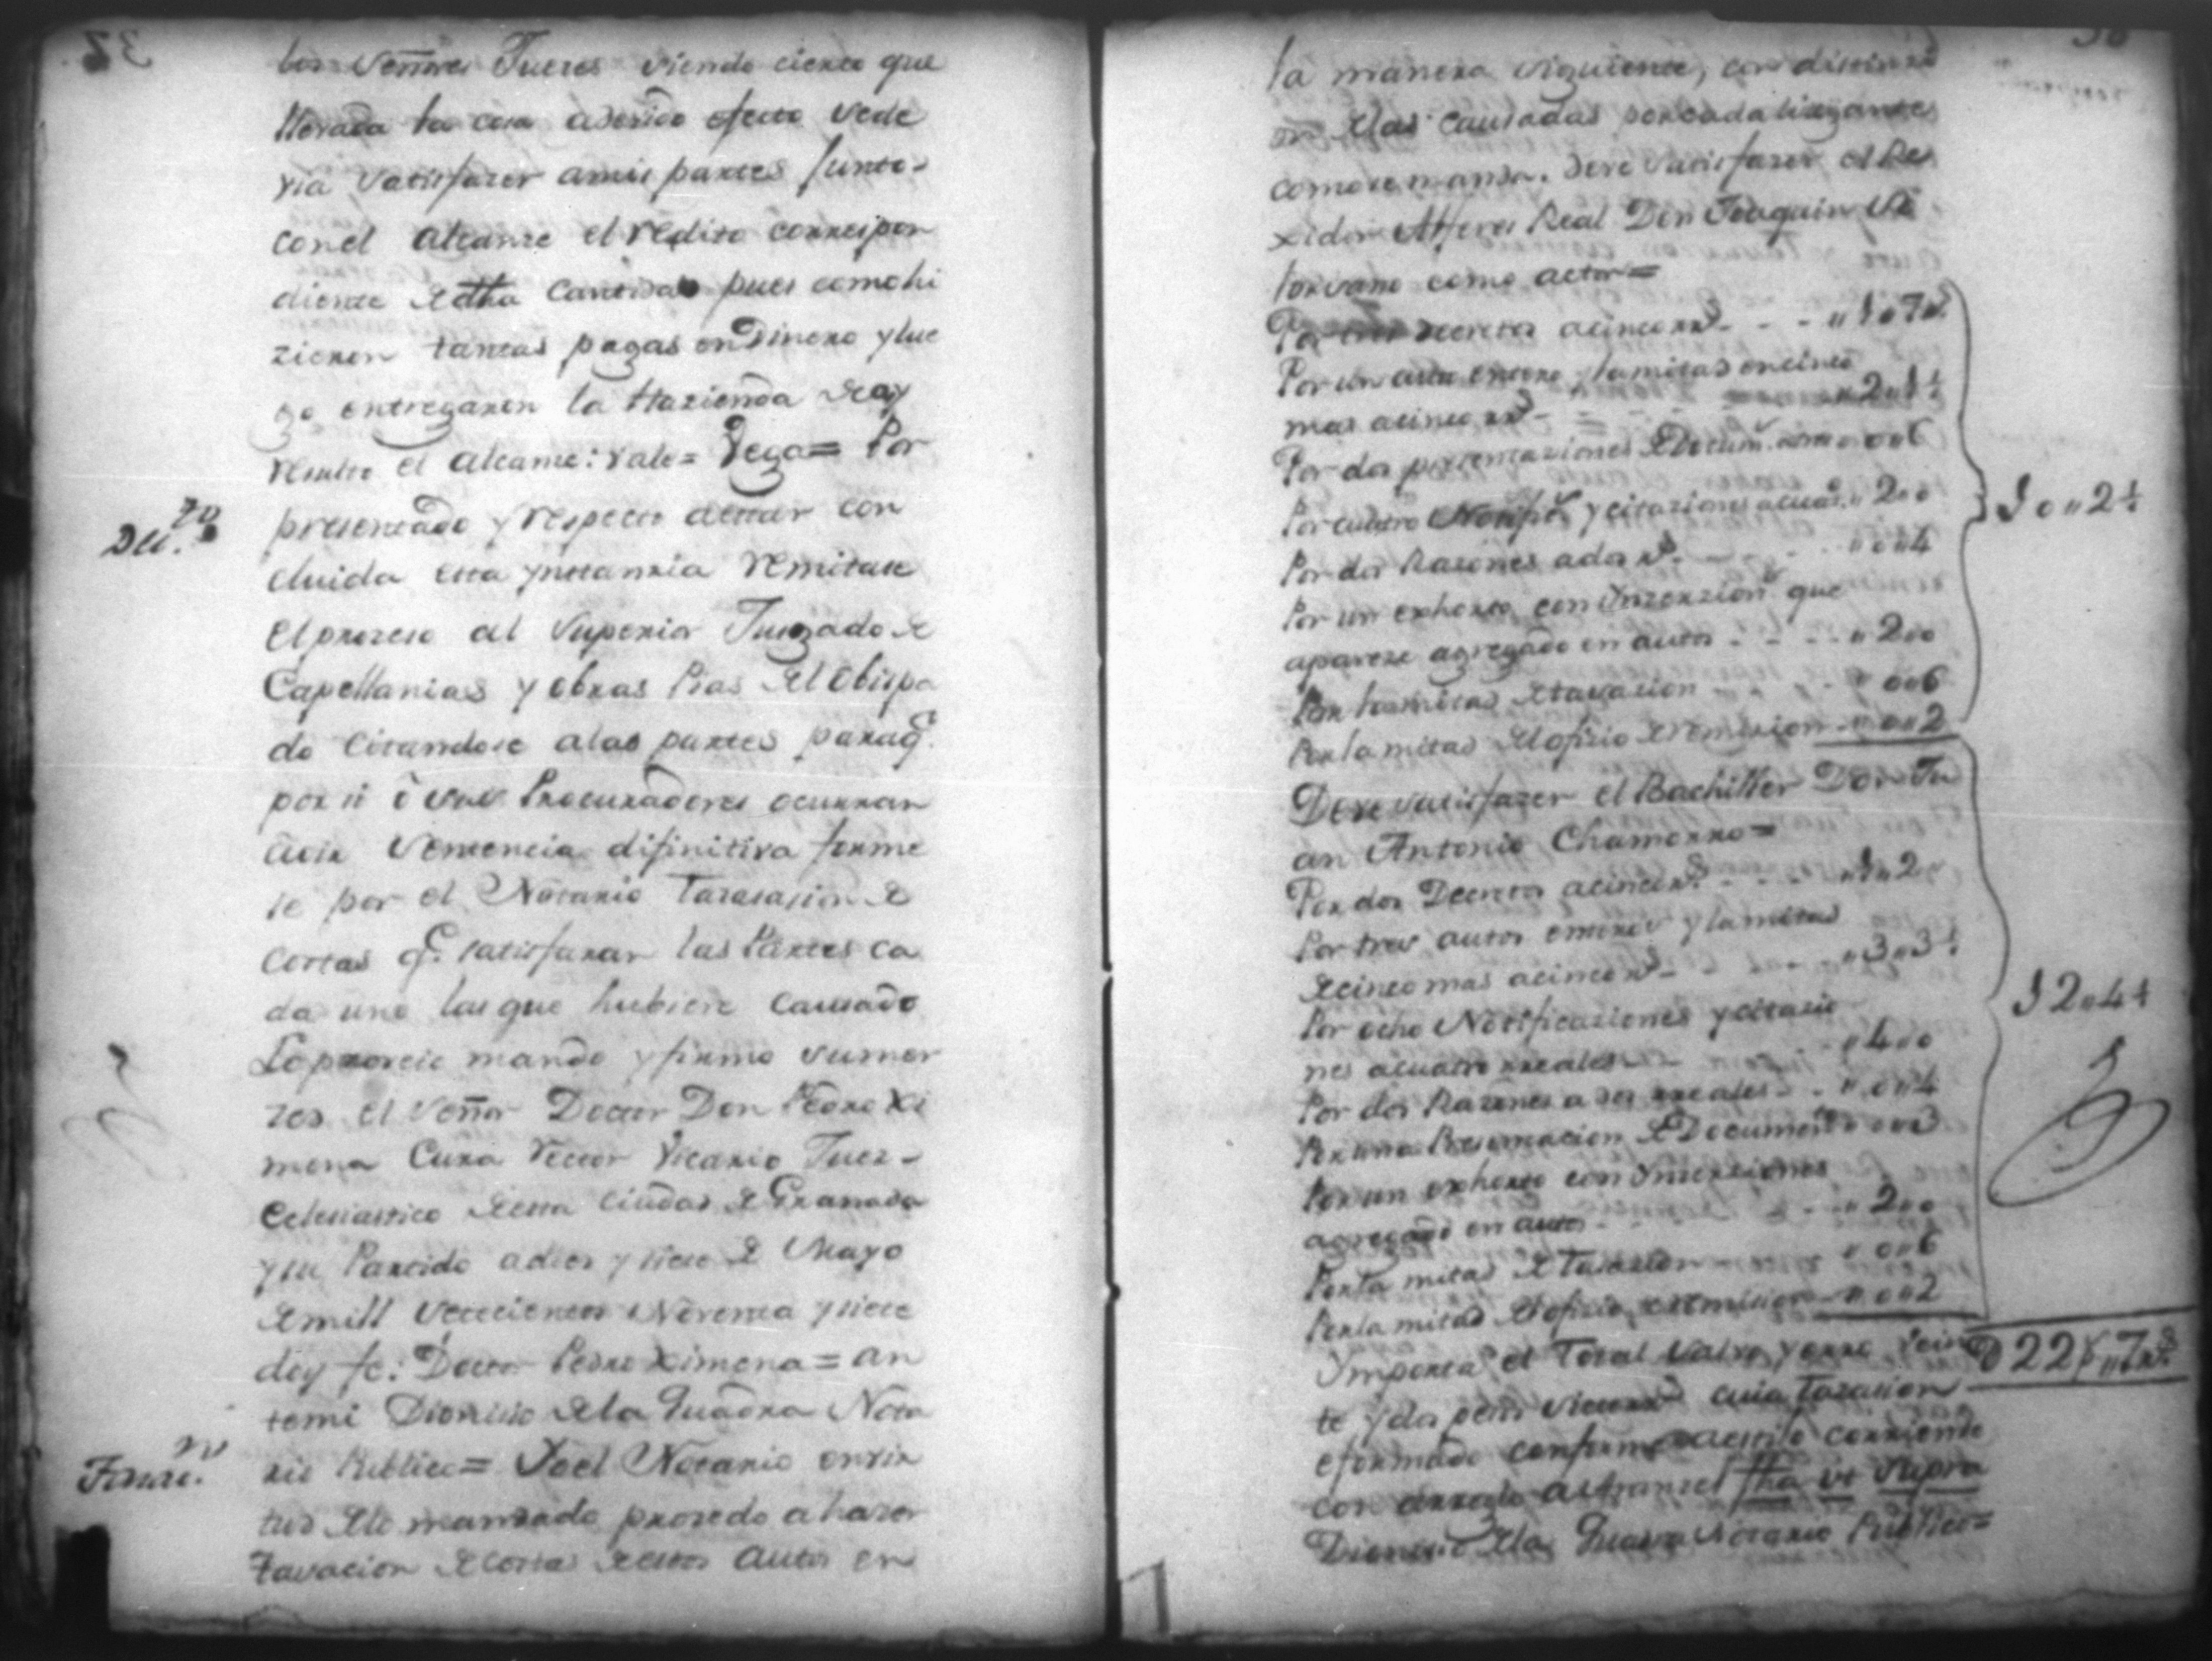 los Señores Jueces siendo cierto que
llevada la cosa a devido efecto se de
ria satisfazer a mis partes junto-
con el alcanze el redito correspon
diente de dha cantidad pues como hi
zieron tantas pagas en Dinero y lue
go entregaron la Hazienda de ay
resulto el alcanze: vale= Vega= Por
Dec.to
presentado y respecto a estar con
cluida esta ynstanzia remitase
el prozeso al Superior Juzgado de
Capellanias y obras Pias del Obispa
do Citandose a las partes para q.e
por si ô sus Procuradores ocurran
a oir Sentencia difinitiva forme
se por el Notario Tazasasion de
Costas q.e satisfaran las Partes ca
da uno las que hubiere Causado
Lo proveio mando y firmo su mer
zed el Señor Doctor Don Pedro Xi
mena Cura Rector Vicario Juez-
Eclesiastico de esta Ciudad de Granada
y su Partido a dies y siete de Mayo
de mill Setecientos Noventa y siete
doy fe: Doctor Pedro Ximena= an
temi Dionisio de la Quadra Nota
rio Publico= Yo el Notario en vir
tud de lo mandado prozedo a hazer
Tasacion de Costas de estos Autos en
la manera siguiente, con distinzi
on de las Causadas por cada litigante
como se manda. Deve satisfazer el Re
xidor Alferes Real Don Joaquin Vi
lorvano como actor=
Por tres Decretos a cinco rr.s - - - " 1 " 7 "
Por un auto entero y la mitad en cinco
mas a cinco rr.s - = - - " 2 " 1 ½
Por dos presentaziones de Docum.s " 0 " 6
Por cuatro Notifi.s y citaziones " 2 " 0
Por dos Razones a dos r.s - - - " 0 " 4
Por un exhorto con Ynzerzion que
apareze agregado en autos - - - " 2 " 0
Por la mitad de tasazion " 0 " 6
Por la mitad del ofizio de remision " 0 " 2
10 " 2 ½
Deve satisfazer el Bachiller Don Ju
an Antonio Chamorro=
Por dos Decretos a cinco r.s - - - " 1 " 2
Por tres autos enteros y la mitad
de cinco mas a cinco r.s - - " 3 " 3 ½
Por ocho Notificaziones y citazio
nes a cuatro rreales - - " 4 " 0
Por dos Razones a dos rreales - - " 0 " 4
Por una Presentacion de Document " 0 " 3
Por un exhorto con Ynserziones
agregado en autos - - - " 2 " 0
Por la mitad de Tasazion " 0 " 6
Por la mitad del ofizio de remision " 0 " 2
12 " 4 ½
Ymporta el Total salvo yerro vein
22 p.s " 7 r.s
te y dos pesos siete rr.s cuia Tazasion
e formado conforme a estilo corriente
con arreglo a el Aranzel fha ut supra
Dionisio de la Quadra Notario Publico=